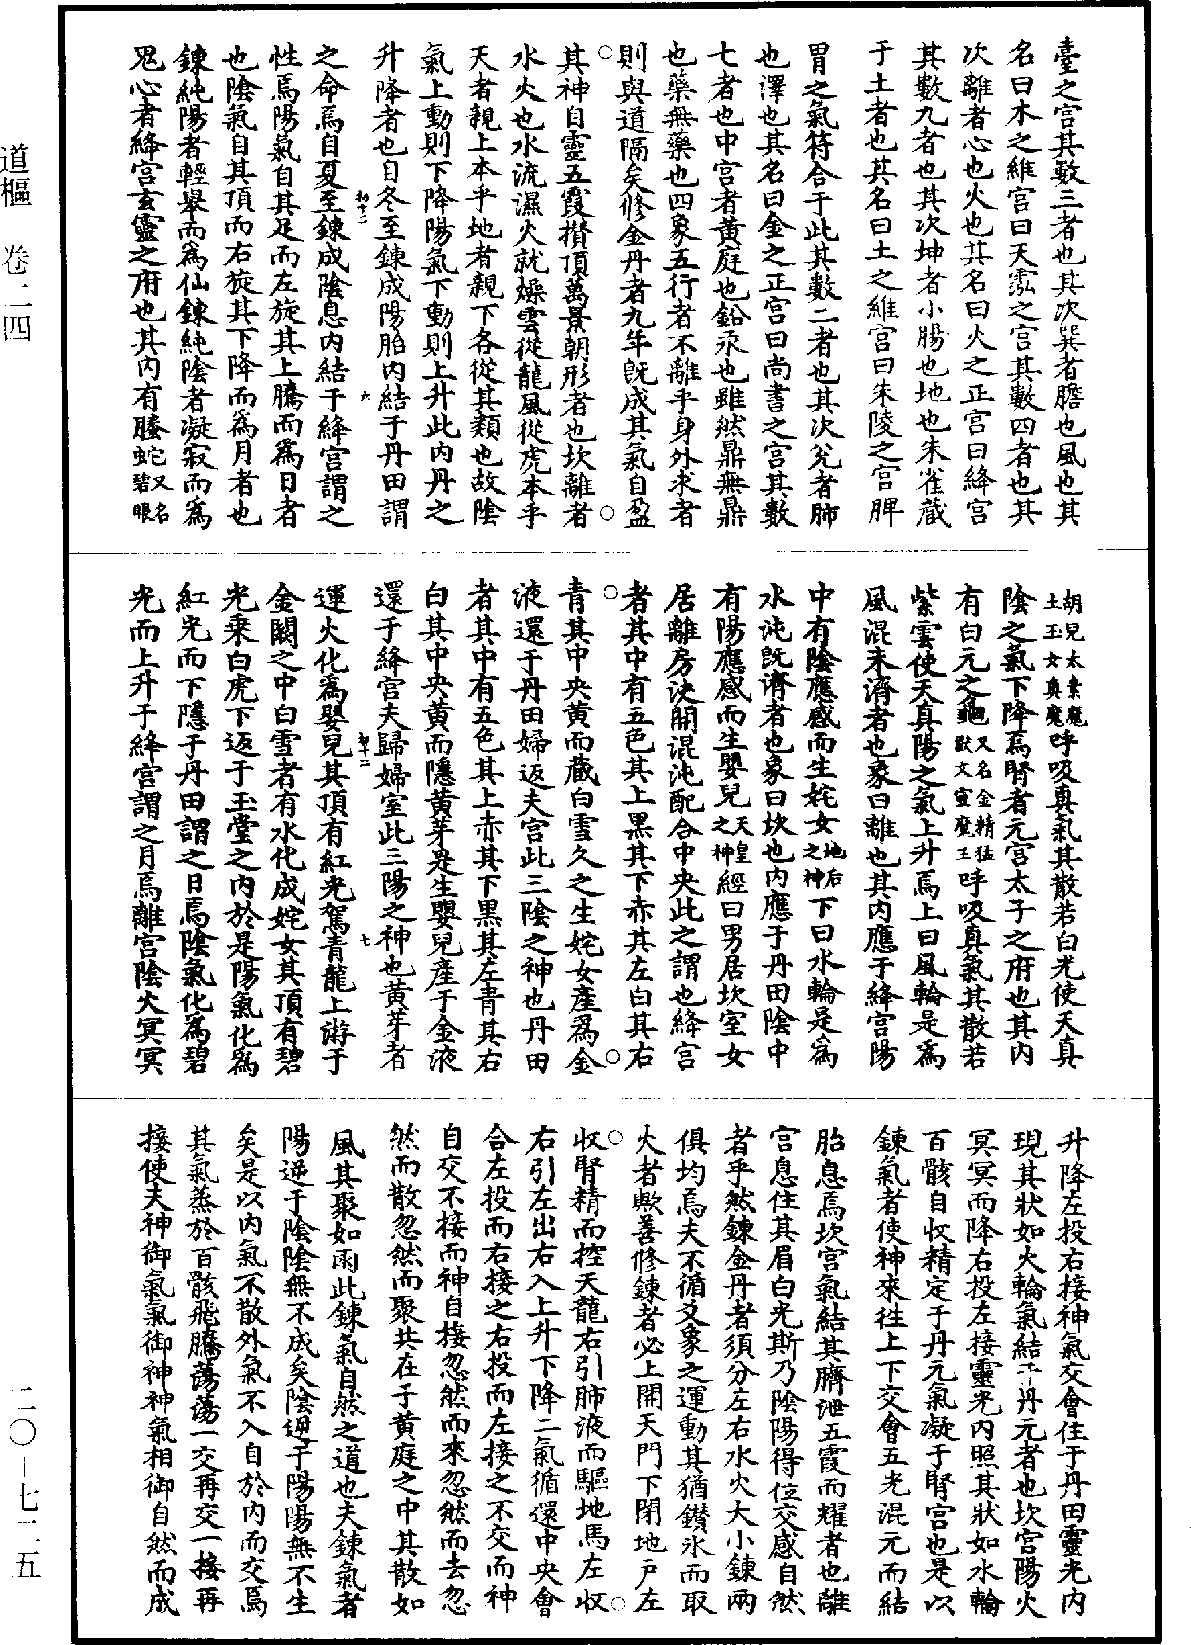 道樞　卷二四
二〇—七二五
臺之宮其數三者也其次巽者膽也風也其
名曰木之維宮曰天霐之宮其數四者也其
次離者心也火也其名曰火之正宮曰絳宮
其數九者也其次坤者小腸也地也朱雀藏
于土者也其名曰土之維宮曰朱陵之宮脾
胃之氣符合于此其數二者也其次兌者肺
也澤也其名曰金之正宮曰尚書之宮其數
七者也中宮者黃庭也鉛汞也雖然鼎無鼎
也藥無藥也四象五行者不離乎身外求者
則與道隔矣修金丹者九年旣成其氣自盈
其神自靈五霞攢頂萬景朝形者也坎離者
水火也水流濕火就燥雲從龍風從虎本乎
天者親上本乎地者親下各從其類也故陰
氣上動則下降陽氣下動則上升此內丹之
升降者也自冬至鍊成陽胎內結于丹田謂
之命焉自夏至鍊成陰息內結于絳宮謂之
性焉陽氣自其足而左旋其上騰而爲日者
也陰氣自其頂而右旋其下降而爲月者也
鍊純陽者輕舉而爲仙鍊純陰者凝寂而爲
鬼心者絳宮玄靈之府也其內有螣蛇又名碧眼
胡兒太素魔土玉女真魔呼吸真氣其散若白光使天真
陰之氣下降焉腎者元宮太子之府也其內
有白元之龜又名金精猛獸文宣魔王呼吸真氣其散若
紫雲使天真陽之氣上升焉上曰風輪是爲
風混未濟者也象曰離也其內應于絳宮陽
中有陰應感而生姹女地后之神下曰水輪是爲
水沌旣濟者也象曰坎也內應于丹田陰中
有陽應感而生嬰兒天皇之神經曰男居坎室女
居離房決開混沌配合中央此之謂也絳宮
者其中有五色其上黑其下赤其左白其右
青其中央黃而藏白雪久之生姹女產爲金
液還于丹田婦返夫宮此三陰之神也丹田
者其中有五色其上赤其下黑其左青其右
白其中央黃而隱黃芽是生嬰兒產于金液
還于絳宮夫歸婦室此三陽之神也黃芽者
運火化爲嬰兒其頂有紅光駕青龍上游于
金闕之中白雪者有水化成姹女其頂有碧
光乘白虎下返于玉堂之內於是陽氣化爲
紅光而下隱于丹田謂之日焉陰氣化爲碧
光而上升于絳宮謂之月焉離宮陰火冥冥
升降左投右接神氣交會住于丹田靈光內
現其狀如火輪氣結于丹元者也坎宮陽火
冥冥而降右投左接靈光內照其狀如水輪
百骸自收精定于丹元氣凝于腎宮也是以
鍊氣者使神來往上下交會五光混元而結
胎息焉坎宮氣結其臍泄五霞而耀者也離
宮息住其眉白光斯乃陰陽得位交感自然
者乎然鍊金丹者須分左右水火大小鍊兩
俱均焉夫不循爻象之運動其猶鑽氷而取
火者歟善修鍊者必上開天門下閉地戶左
收腎精而控天龍右引肺液而驅地馬左收
右引左出右入上升下降二氣循還中央會
合左投而右接之右投而左接之不交而神
自交不接而神自接忽然而來忽然而去忽
然而散忽然而聚共在于黃庭之中其散如
風其聚如雨此鍊氣自然之道也夫鍊氣者
陽逆于陰陰無不成矣陰迎于陽陽無不生
矣是以內氣不散外氣不入自於內而交焉
其氣蒸於百骸飛騰蕩蕩一交再交一接再
接使夫神御氣氣御神神氣相御自然而成